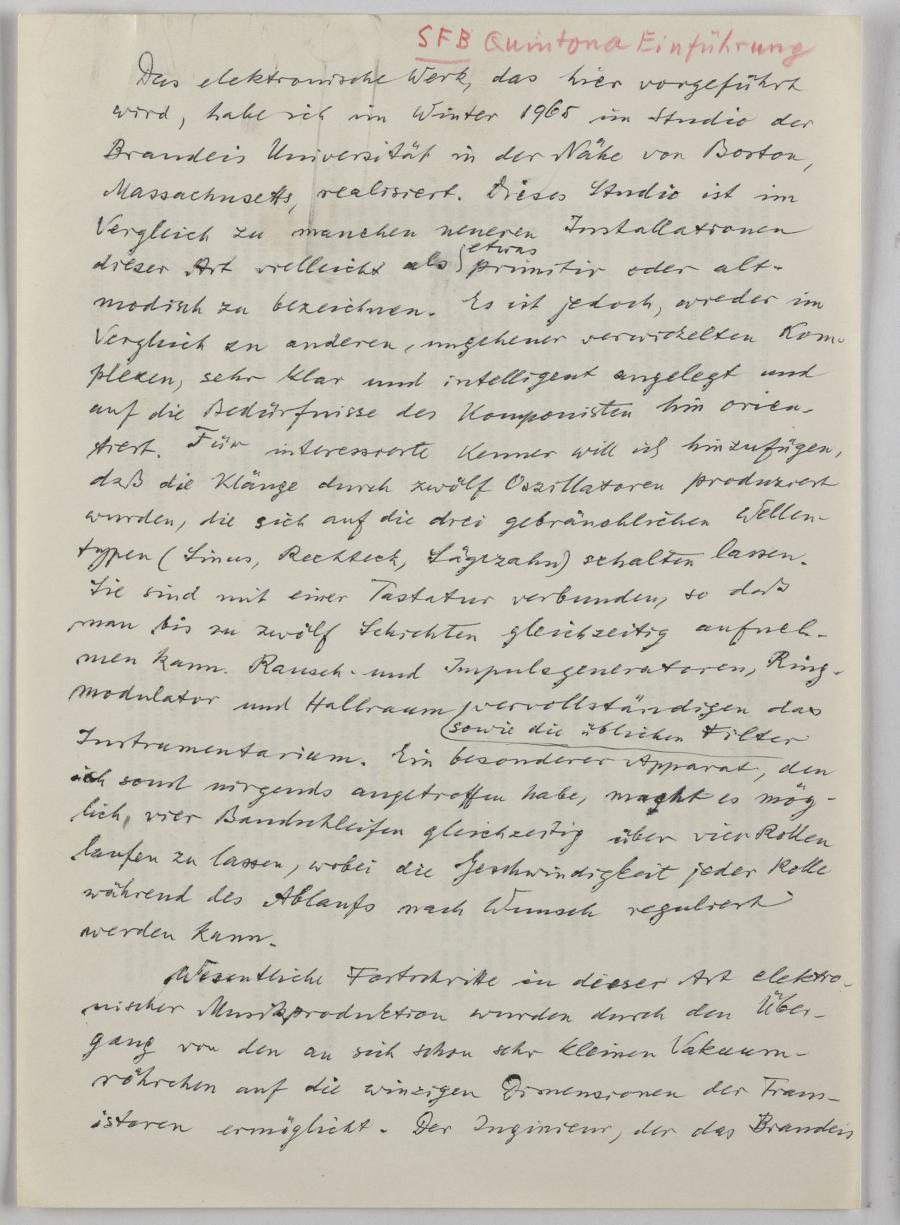 SFB Quintona Einführung
Das elektronische Werk, das hier vorgeführt
wird, habe ich im Winter 1965 im Studio der
Brandeis Universität in der Nähe von Boston,
Massachusetts, realisiert. Dieses Studio ist im
Vergleich zu manchen neueren Installationen
etwas
dieser Art vielleicht als primitiv oder alt-
modisch zu bezeichnen. Es ist jedoch, wieder im
Vergleich zu anderen, ungeheuer verwickelten Kom-
plexen, sehr klar und intelligent angelegt und
auf die Bedürfnisse des Komponisten hin orien-
tiert. Für interessierte Kenner will ich hinzufügen,
daß die Klänge durch zwölf Oszillatoren produziert
wurden, die sich auf die drei gebräuchlichen Wellen-
typen (Sinus, Rechteck, Sägezahn) schalten lassen.
Sie sind mit einer Tastatur verbunden, so daß
man bis zu zwölf Schichten gleichzeitig aufneh-
men kann. Rausch- und Impulsgeneratoren, Ring-
modulator und Hallraum vervollständigen das
sowie die üblichen Filter
Instrumentarium. Ein besonderer Apparat, den
ich sonst nirgends angetroffen habe, macht es mög-
lich, vier Bandschleifen gleichzeitig über vier Rollen
laufen zu lassen, wobei die Geschwindigkeit jeder Rolle
während des Ablaufs nach Wunsch reguliert
werden kann.
Wesentliche Fortschritte in dieser Art elektro-
nischer Musikproduktion wurden durch den Über-
gang von den an sich schon sehr kleinen Vakuum-
röhrchen auf die winzigen Dimensionen der Trans-
istoren ermöglicht. Der Inginieur, der das Brandeis